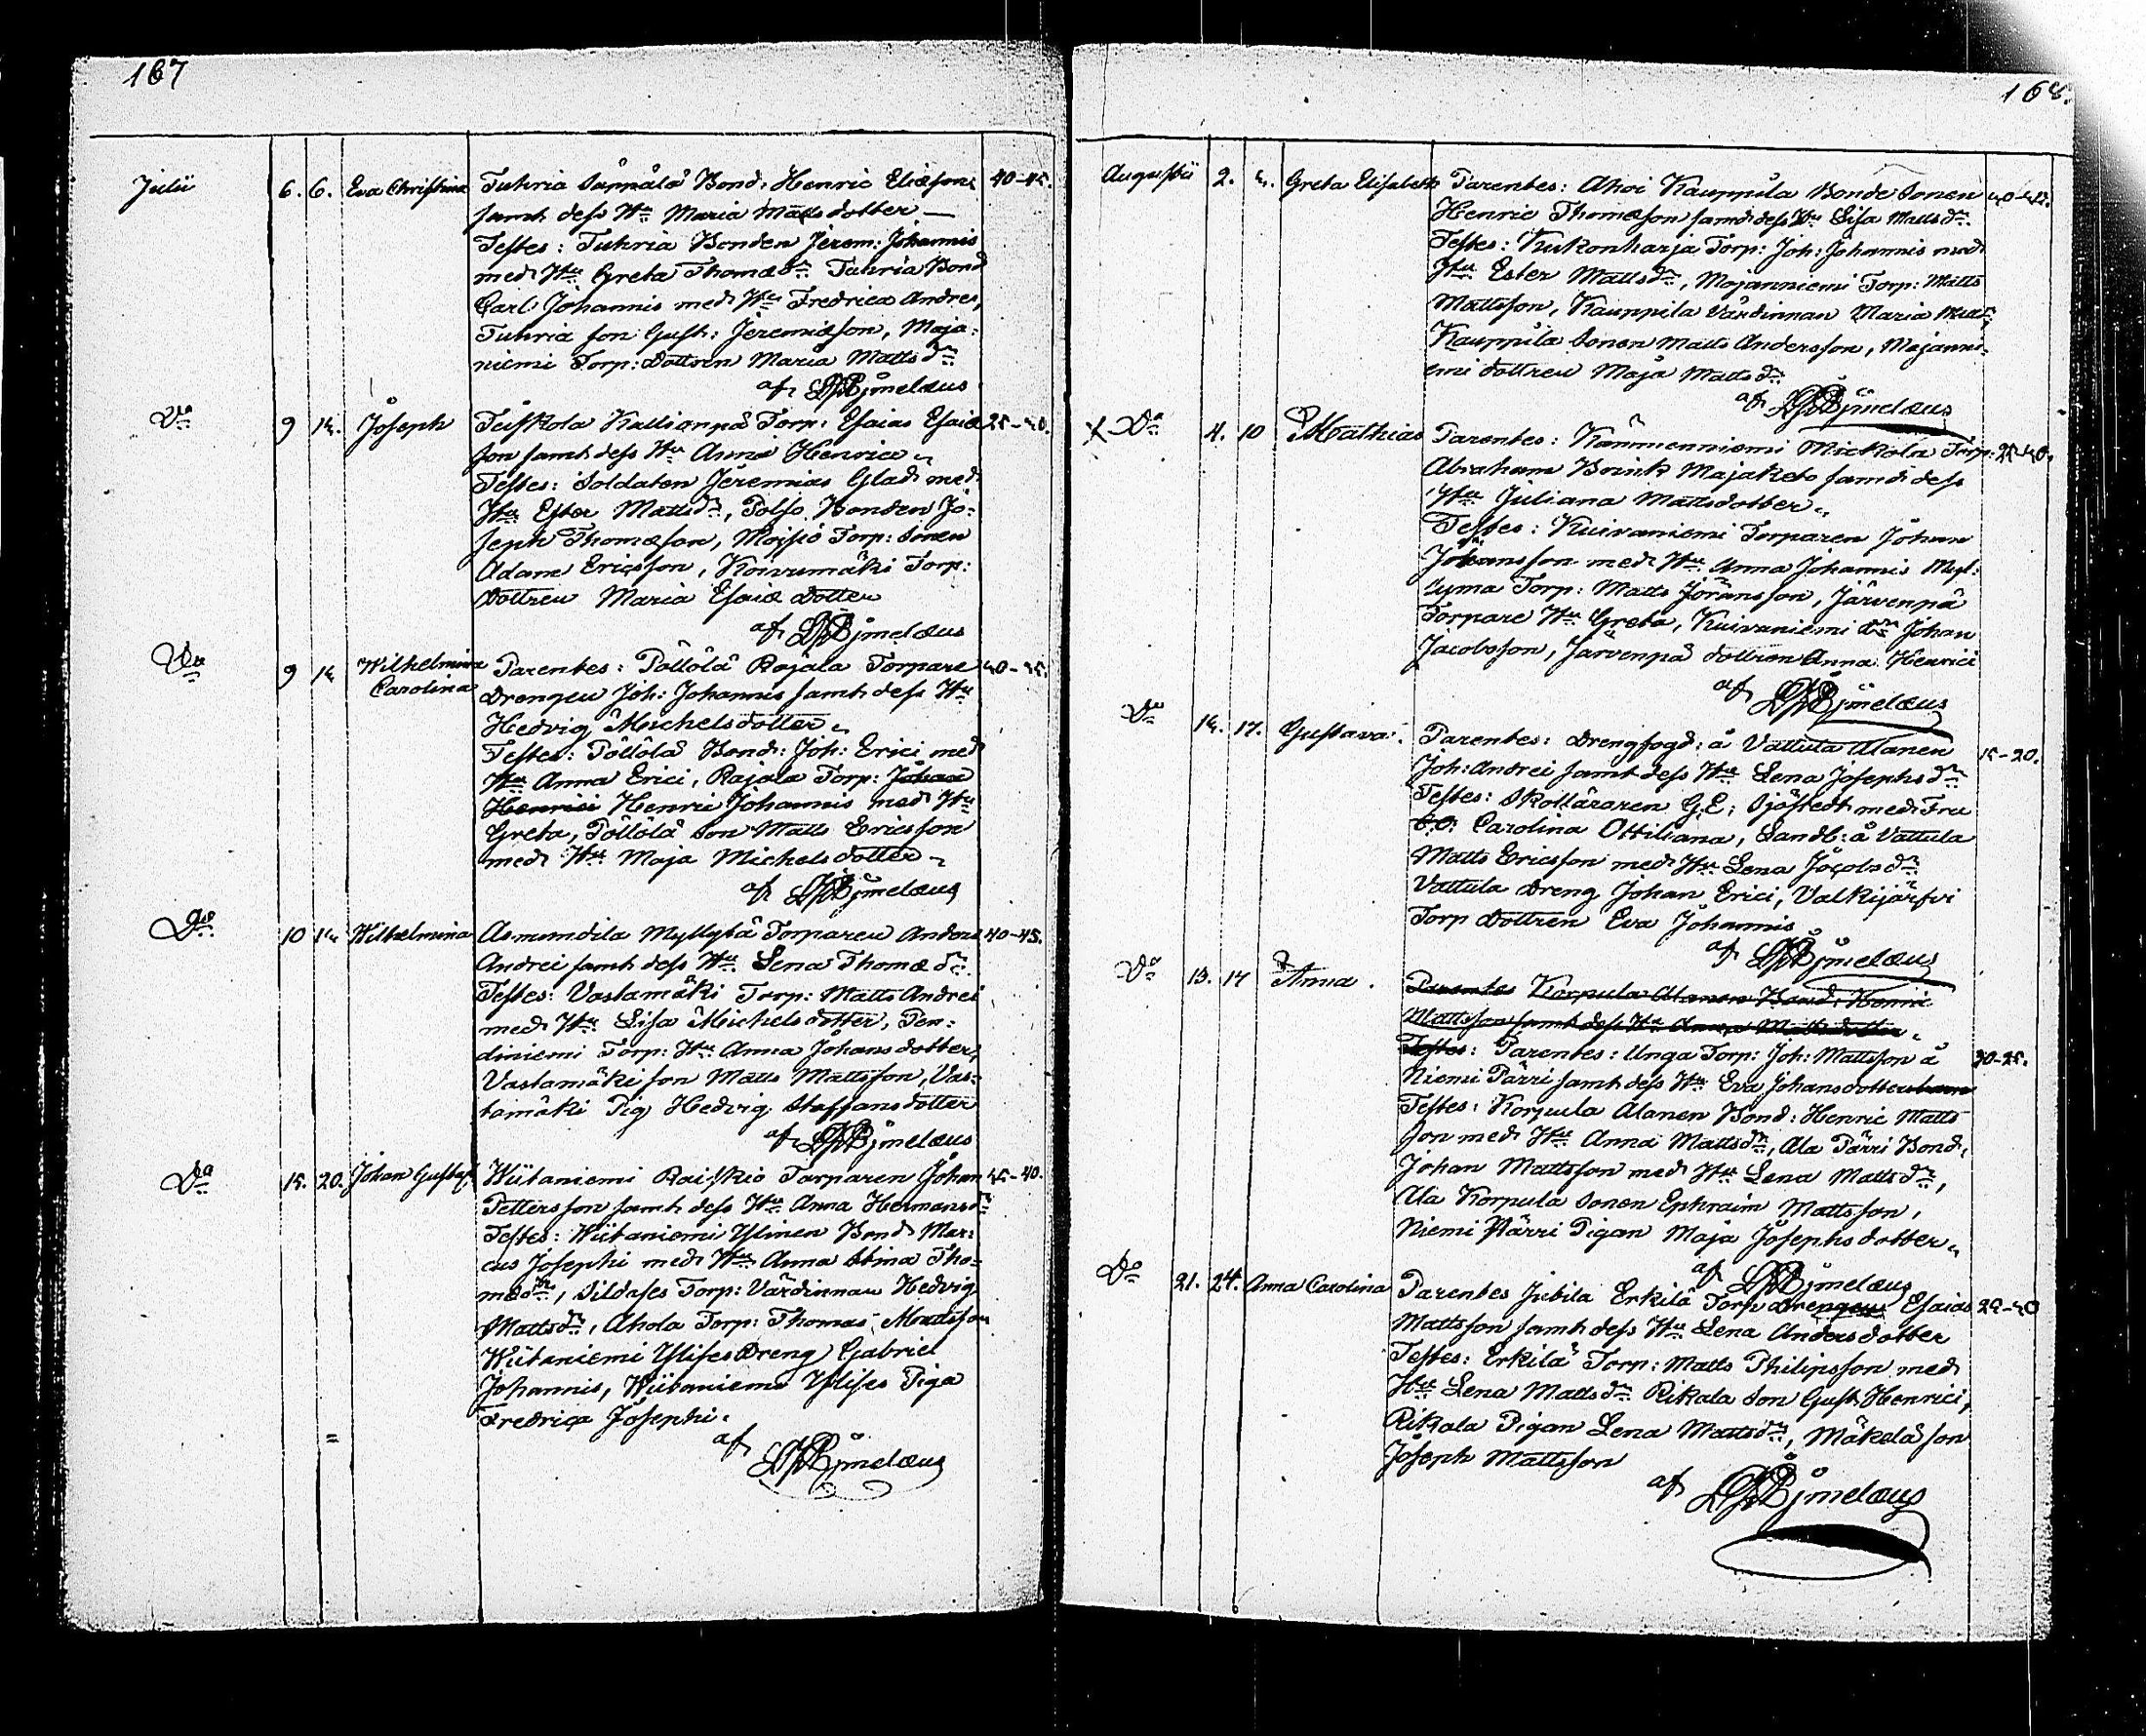 167
Julii 6. 6. Eva Christina Tuhria Säppälä Bond: Henric Eliæson 40-45.
samt dess Hu Maria Matts dotter —
Testes: Tuhria Bonden Jerem: Johannis
med Hu Greta Thomædr Tuhria Bond
Carl Johannis med Hu Fredrica Andres,
Tuhria son Gust: Jeremiæson, Maja-
niemi Torp: Dottren Maria Matts dr
af Björnelæus
Do 9 14. Joseph Torp: Esaias Esaiæ
son samt dess Hu Anna Henrice
Testes: Soldaten Jeremias Glad med
Hu Ester Mattsdr, Polso Bonden Jo-
seph Thomæson, Moisio Torp: Sonen
Adam Ericsson, Koivumäki Torp:
Dottren Maria Esaiæ Dotter
af Björnelæus
Do 9 14 Wilhelmina Parentes: Pöllölä Rajala Torpare
Carolina Drengen Joh: Johannis samt dess Hu
Hedvig Michelsdotter
Testes: Pöllölä Bond: Joh: Erici med
Hu Anna Erici, Rajala Torp: Johan
Henrici Henric Johannis med Hu
Greta, Pöllölä Son Matts Ericsson
med Hu Maja Michelsdotter
af Björnelæus
Do 10 14 Wilhelmina Asmundila Myllylä Torparen Anders 40-45.
Andrei samt dess Hu Lena Thomædr
Testes: Vastamäki Torp: Matts Andrei
med Hu Lisa Michelsdotter, Pen-
diniemi Torp: Hu Anna Johansdotter,
Vastamäki son Matts Mattsson, Vas-
tamäki Pig Hedvig Staffansdotter
af Björnelæus
Do 15. 20. Johan Gustaf Wiitaniemi Raiskio Torparen Johan
Pettersson samt dess Hu Anna Hermansdr
Testes: Wiitaniemi Ylinen Bond Mar-
cus Josephi med Hu Anna Stina Tho-
mædr, Torp: Värdinnan Hedvig
Mattsdr, Ahola Torp: Thomas Mattsson
Wiitaniemi Dreng Gabriel
Johannis, Wiitaniemi Piga
Fredrica Josephi.
af Björnelæus
168.
Augusti 2. 4. Greta Elisabeth Parentes: Ahoi Kauppila Bonde Sonen
Henric Thomæson samt dess Hu Lisa Mattsdr
Testes: Kukonharja Torp: Joh: Johannis med
Hu Ester Mattsdr, Majanniemi Torp: Matts
Mattsson, Kauppila Värdinnan Maria
Kauppila Sonen Matts Andersson, Majanni-
emi dottren Maja Mattsdr
af Björnelæus
X Do 4. 10 Mathias Parentes: Kämmenniemi Mickola Torp:
Abraham samt dess
Hu Juliana Mattsdotter
Testes: Kuivaniemi Torparen Johan
Johansson med Hu Anna Johannis Myl-
Torp: Matts Jöransson, Järvenpä
Torpare Hu Greta, Kuivaniemi Johan
Jacobsson, Järvenpä dottren Anna Henrici
af Björnelæus
Do 14. 17. Gustava. Parentes: Drengfogd: å Vattula Alanen 15-20.
Joh: Andrei samt dess Hu Lena Josephsdr
Testes: Skolläraren G.E. Sjöstedt med Fru
Carolina Ottiliana, Landb: å Vattula
Matts Ericsson med Hu Lena Jacobsdr
Vattula Dreng Johan Erici, Valkijärfvi
Torp Dottren Eva Johannis
af Björnelæus
Do 13. 17 Anna. Parentes Korpula Alanen Bond: Henric
Mattsson samt dess Hu Anna Mattsdotter
Testes: Parentes: Unga Torp: Joh: Mattsson å
Niemi Pärri samt dess Hu Eva Johansdotter
Testes: Korpula Alanen Bond: Henric Matts
son med Hu Anna Mattsdr, Ala Pärri Bond,
Johan Mattsson med Hu Lena Mattsdr,
Ala Korpula Sonen Ephraim Mattsson,
Niemi Pärri Pigan Maja Josephsdotter
af Björnelæus
Do 21. 24. Anna Carolina Parentes Jutila Erkilä Torp Drengen Esaias
Mattsson samt dess Hu Lena Andersdotter
Testes: Erkilä Torp: Matts Philipsson med
Hu Lena Mattsdr Rikala Son Gust Henrici,
Rikala Pigan Lena Mattsdr, Mäkelä son
Joseph Mattsson
af Björnelæus